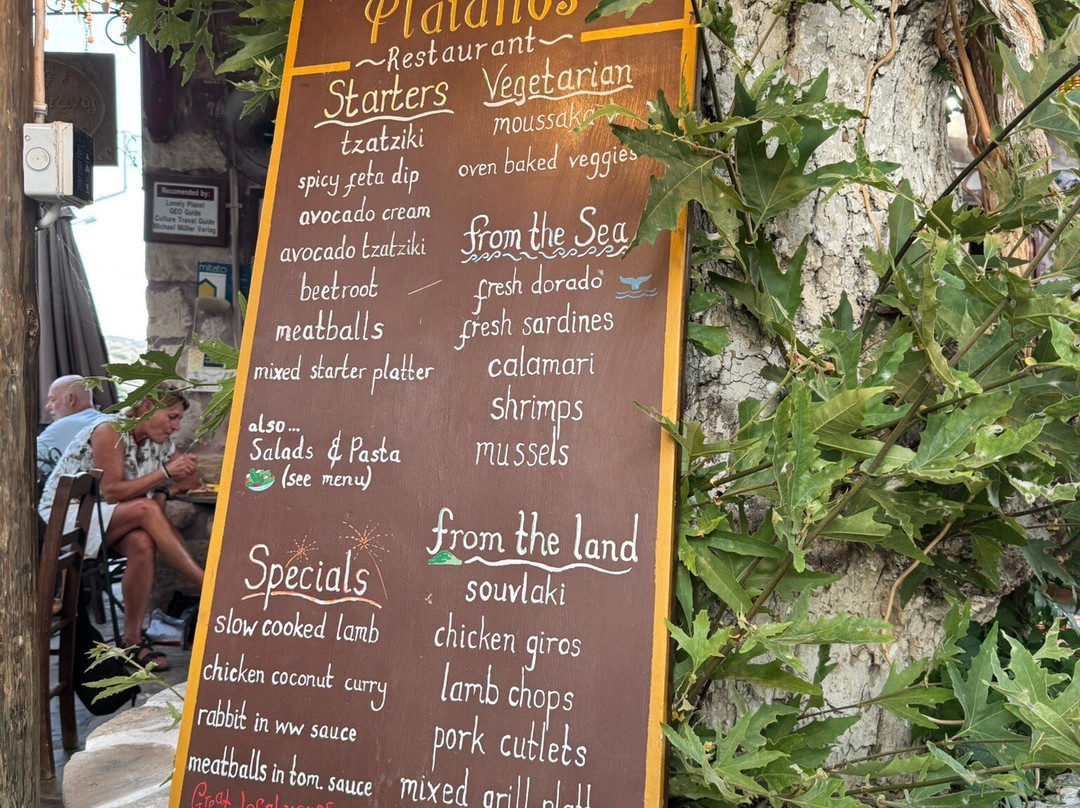 Platanos
~Restaurant~
Starters
tzatziki
spicy feta dip
avocado cream
avocado tzatziki
beetroot
meatballs
mixed starter platter
also...
Salads & Pasta
(see menu)
Specials
slow cooked lamb
chicken coconut curry
rabbit in ww sauce
meatballs in tom. sauce
Great local
Vegetarian
moussaka
oven baked veggies
from the Sea
fresh dorado
fresh sardines
calamari
shrimps
mussels
from the land
souvlaki
chicken giros
lamb chops
pork cutlets
mixed grill
Recomended by:
Lonely Planet
GEO Guide
Culture Travel Guide
Michael Müller Verlag
mitato